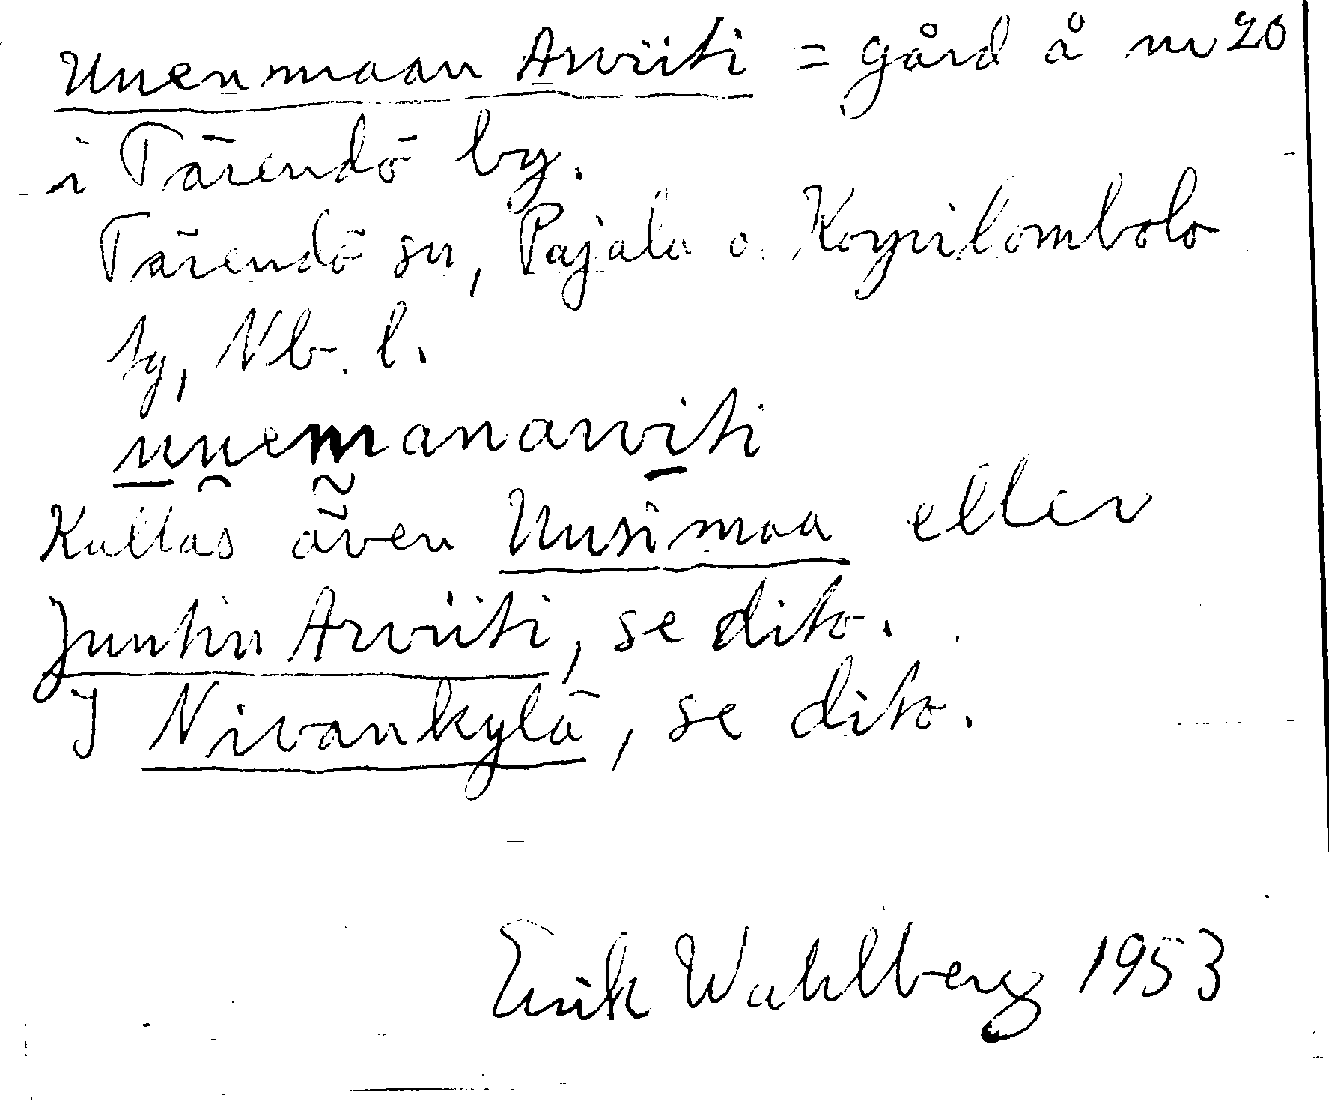 Uuenmaan Arviiti = gård å nr 20
i Tärendö by.
Tärendö sn, Pajala o. Korpilombolo
tg, Nb. l.
uuemanarviti
Kallas även Uusimaa eller
Juntin Arviiti, se dito.
I Nivankylä, se dito.
Erik Wahlberg 1953